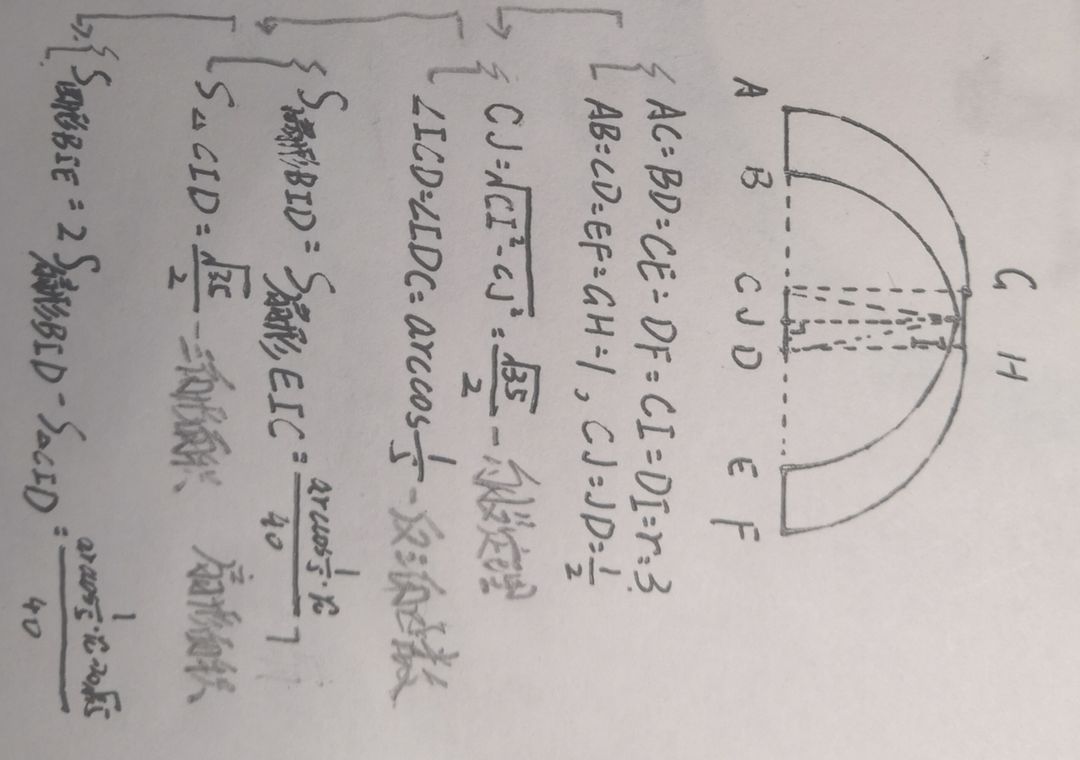 A B C J D E F
G I H
{ AC=BD=CE=DF=CI=DI=r=3
AB=CD=EF=GH=1, CJ=JD=1/2
→ { CJ=√(CI²-CJ²)=√35/2 - 勾股定理
∠ICD=∠IDC=arccos 1/5 - 反三角函数
→ { S扇形BID=S扇形EIC=(arccos 1/5·π)/40 ]
S△CID=√35/2 - 三角形面积 扇形面积
→ { S BIE=2S扇形BID-S△CID=(arccos 1/5·π-20√35)/40